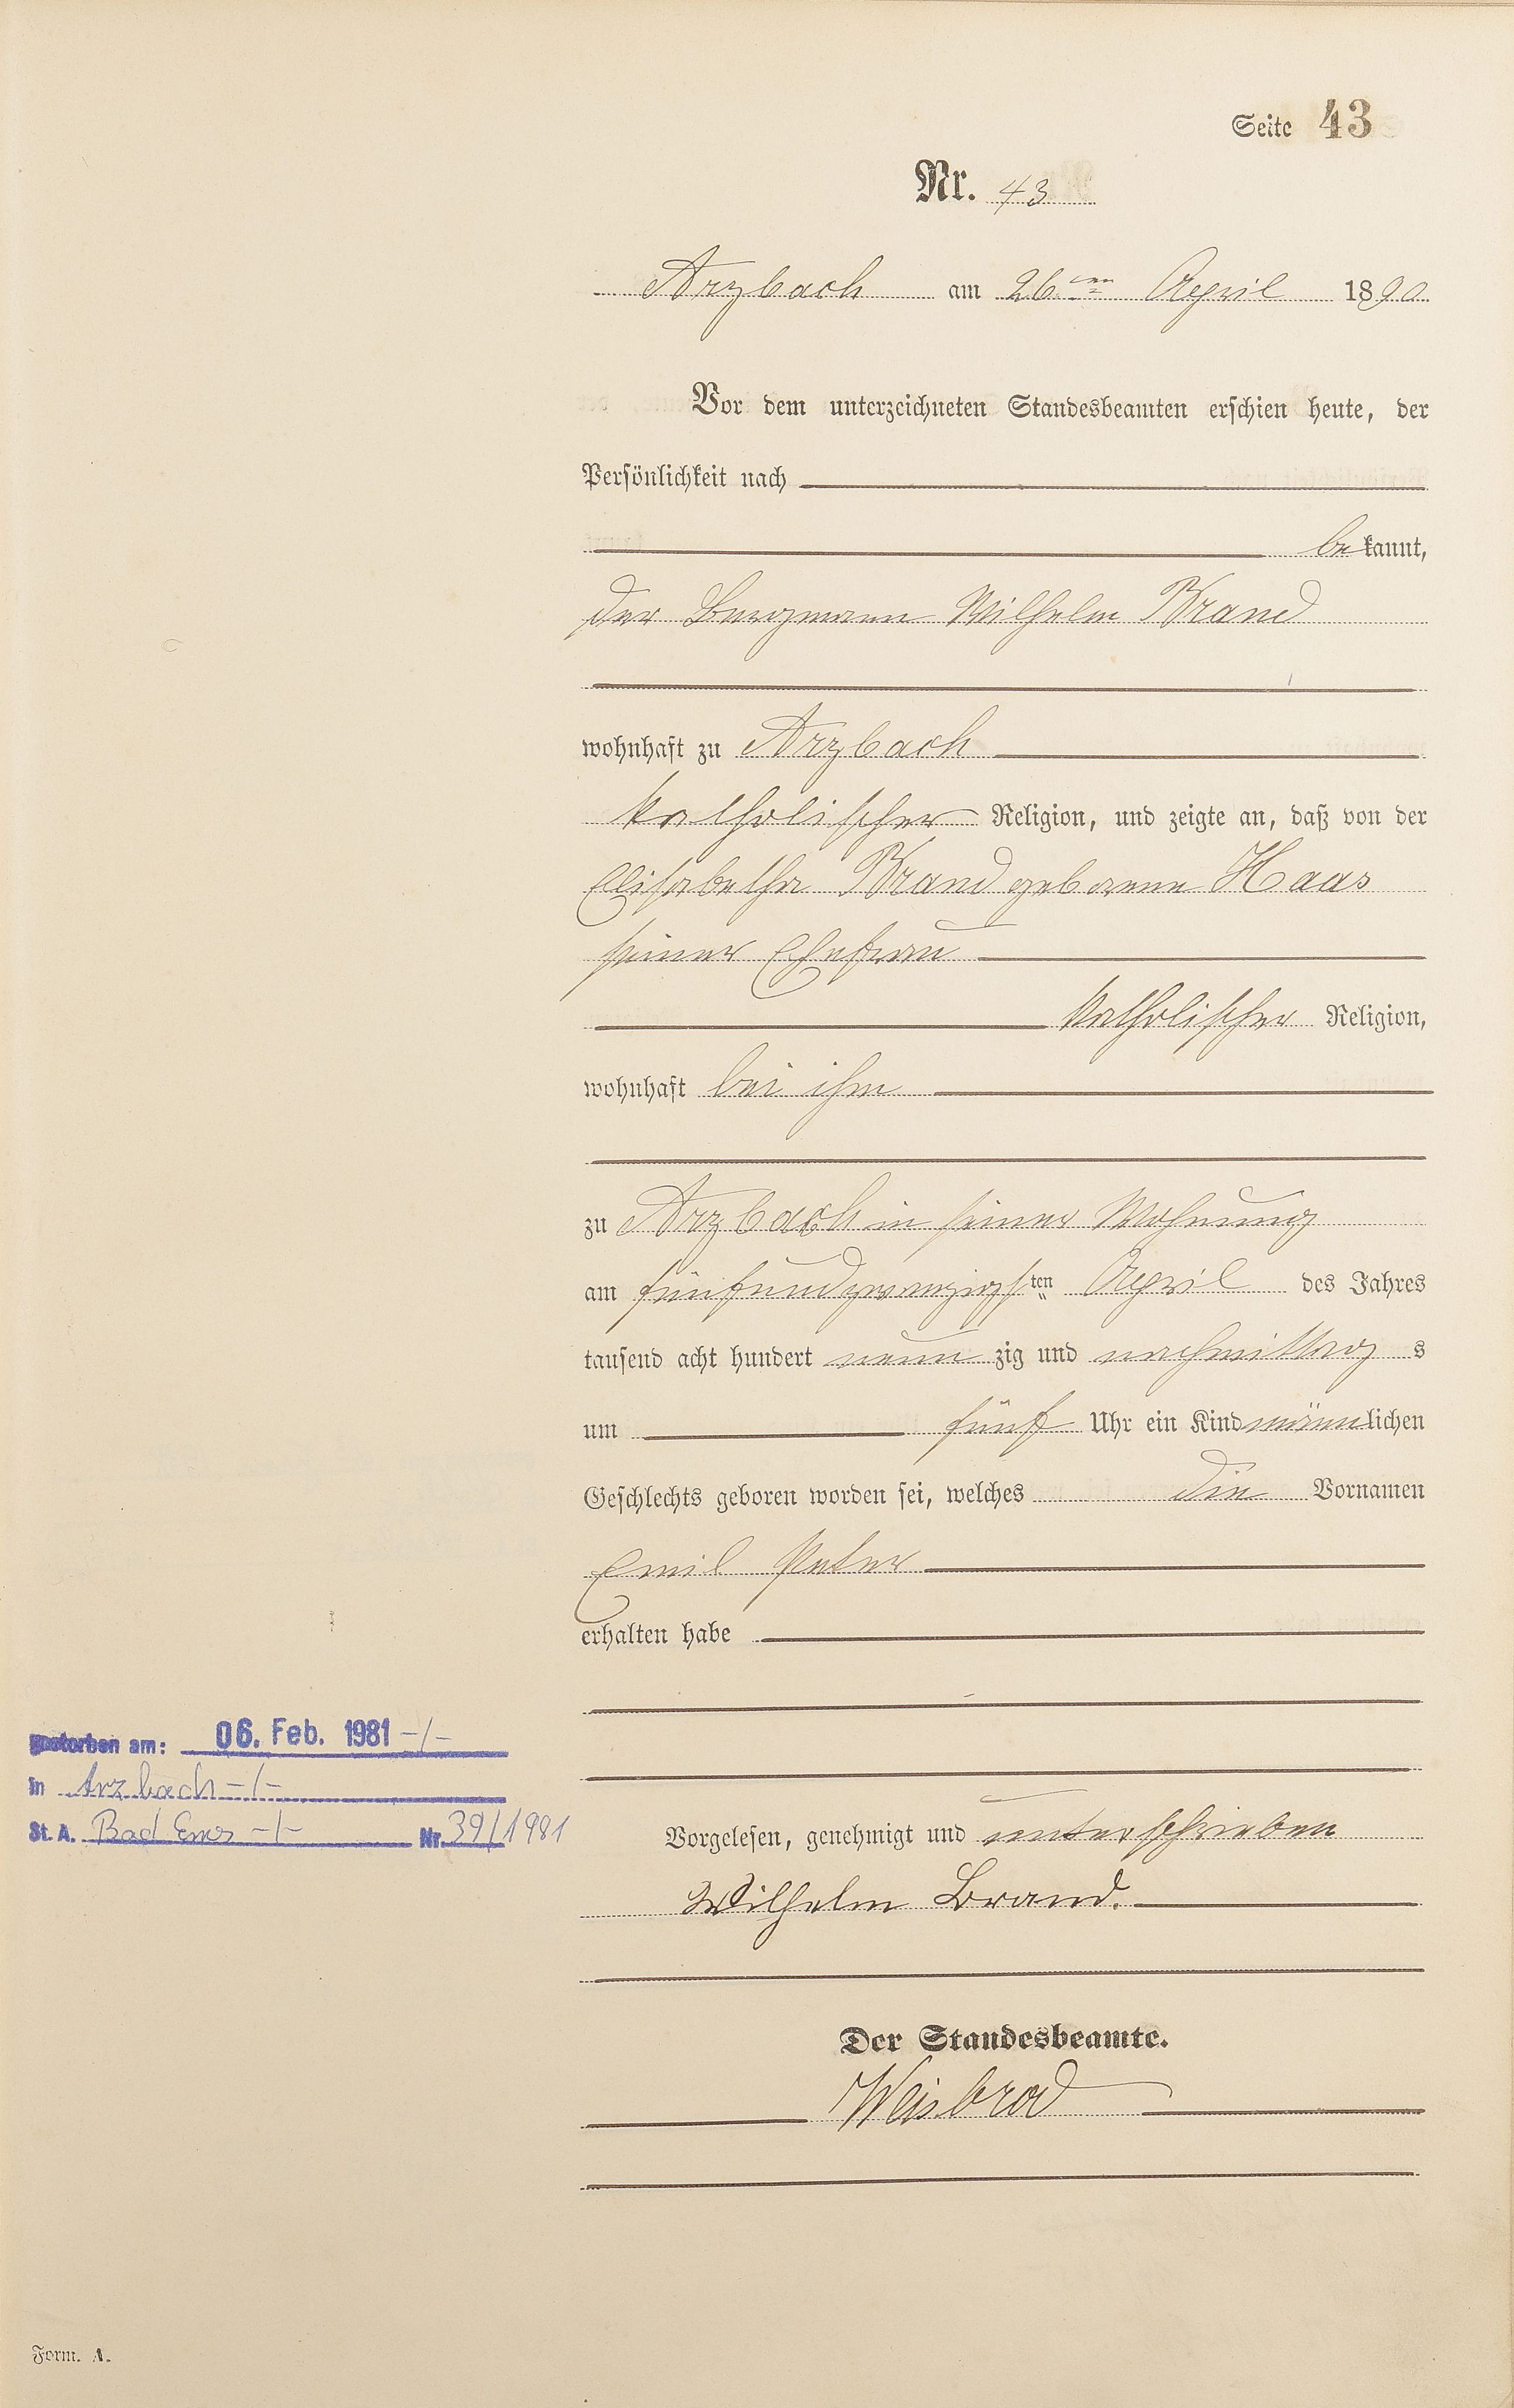 Seite 43
Nr. 43
Arzbach am 26ten April 1890
Vor dem unterzeichneten Standesbeamten erschien heute, der
Persönlichkeit nach
bekannt,
der Bergmann Wilhelm Brand
wohnhaft zu Arzbach
katholischer Religion, und zeigte an, daß von der
Elisabetha Brand geborene Haas
seiner Ehefrau
katholischer Religion,
wohnhaft bei ihm
zu Arzbach in seiner Wohnung
am fünfundzwanzigsten April des Jahres
tausend acht hundert neunzig und nachmittags
um fünf Uhr ein Kind männlichen
Geschlechts geboren worden sei, welches die Vornamen
Emil Peter
erhalten habe
gestorben am: 06. Feb. 1981 -/-
in Arzbach -/-
St. A. Bad Ems -/- Nr. 39/1981
Vorgelesen, genehmigt und unterschrieben
Wilhelm Brand.
Der Standesbeamte.
Weisbrod
Form. A.